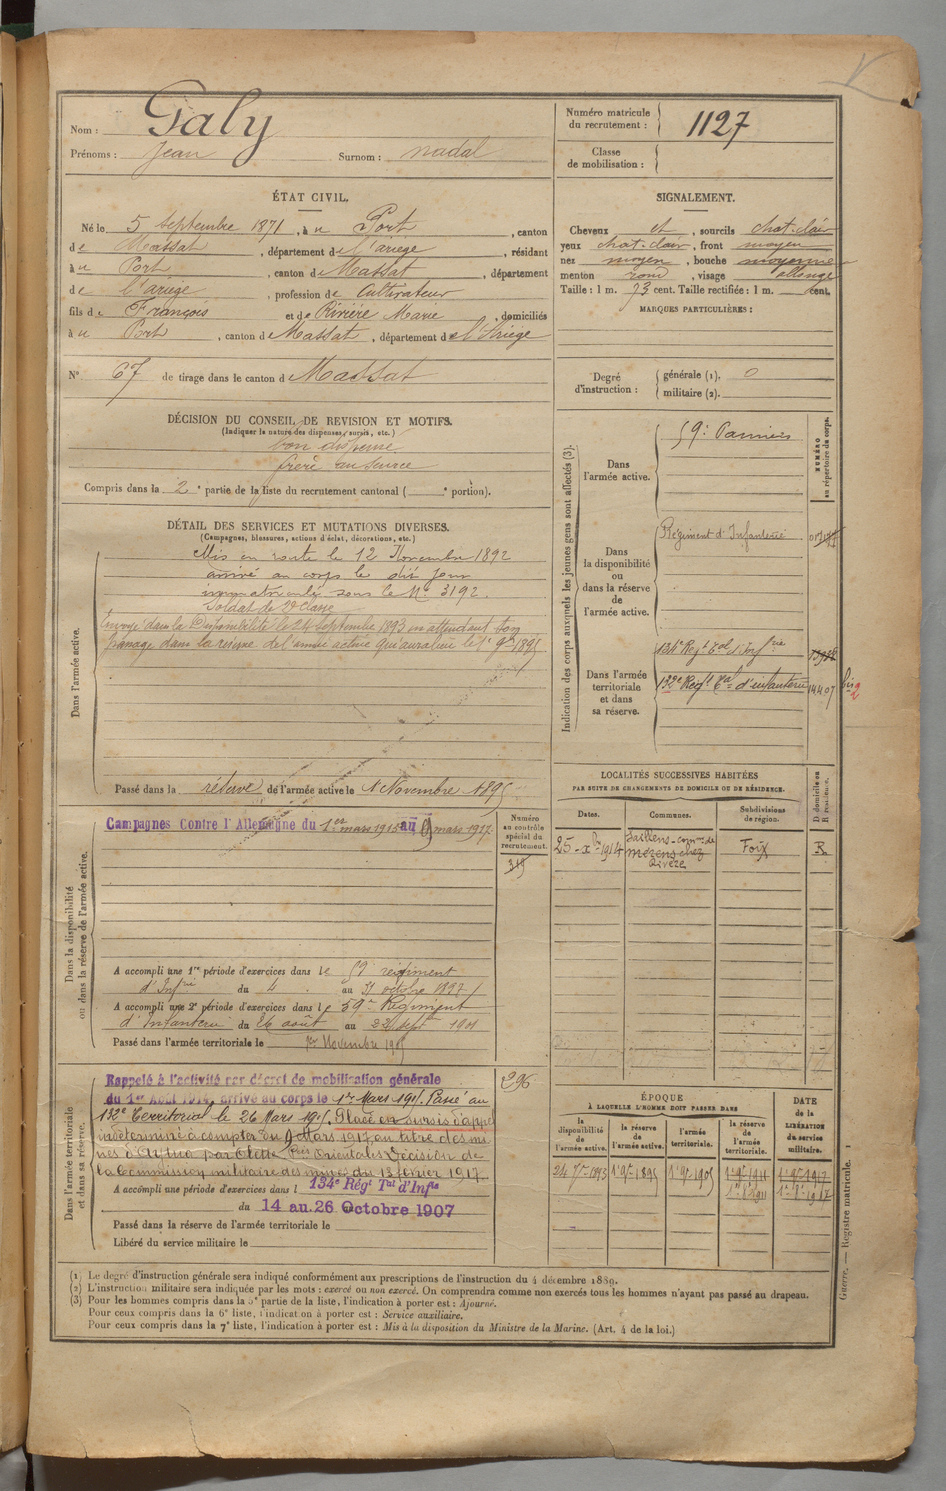 Nom : Galy
Prénoms : Jean Surnom : nadal
Numéro matricule du recrutement : 1127
Classe de mobilisation :
ÉTAT CIVIL.
Né le 5 septembre 1871, à u Port, canton
de Massat, département de l'ariege, résidant
à u Port, canton de Massat, département
de l'ariège, profession de Cultivateur
fils de François et de Rivière Marie, domiciliés
à u Port, canton de Massat, département de l'Ariege
N° 67 de tirage dans le canton de Massat
SIGNALEMENT.
Cheveux et, sourcils chat. clair
yeux chat. clair, front moyen
nez moyen, bouche moyenne
menton rond, visage allongé
Taille : 1 m. 73 cent. Taille rectifiée : 1 m. cent.
MARQUES PARTICULIÈRES :
Degré d'instruction : générale (1). 0
militaire (2).
DÉCISION DU CONSEIL DE REVISION ET MOTIFS.
(Indiquer la nature des dispenses, sursis, etc.)
bon dispense
frère au service
Compris dans la 2e partie de la liste du recrutement cantonal ( e portion).
DÉTAIL DES SERVICES ET MUTATIONS DIVERSES.
(Campagnes, blessures, actions d'éclat, décorations, etc.)
Dans l'armée active.
Mis en route le 12 Novembre 1892
arrivé au corps le dit jour
immatriculé sous le N° 3192.
Soldat de 2e Classe
Envoyé dans la Disponibilité le 24 septembre 1893 en attendant son
passage dans la réserve de l'armée active qui aura lieu le 1er 9bre 1895
Passé dans la réserve de l'armée active le 1er Novembre 1895
Dans la disponibilité ou dans la réserve de l'armée active.
Campagnes Contre l'Allemagne du 1er mars 1915 au 9 mars 1917
Numéro au contrôle spécial du recrutement.
319
A accompli une 1re période d'exercices dans le 59 regiment
d'Infrie du 4 au 31 octobre 1897
A accompli une 2e période d'exercices dans le 59e Regiment
d'Infanterie du 26 août au 22 sept 1901
Passé dans l'armée territoriale le 1er Novembre 1905
Dans l'armée territoriale et dans sa réserve.
Rappelé à l'activité par décret de mobilisation générale
du 1er Août 1914, arrivé au corps le 1er Mars 1915. Passé au
132e Territorial le 26 Mars 1915. Placé en sursis d'appel
indéterminé à compter du 9 Mars 1917 au titre des mi
nes d'Aytua par Olette Pées Orientales Décision de
la Commission militaire des mines du 13 février 1917
296
A accompli une période d'exercices dans l 134e Régt Tal d'Infie
du 14 au 26 Octobre 1907
Passé dans la réserve de l'armée territoriale le
Libéré du service militaire le
Indication des corps auxquels les jeunes gens sont affectés (3).
NUMÉRO au répertoire du corps.
Dans l'armée active. 59e Pamiers
Dans la disponibilité ou dans la réserve de l'armée active. Régiment d'Infanterie
Dans l'armée territoriale et dans sa réserve.
134e Regt Tal d'Infrie
132e Regt Tal d'infanterie 14407 bis
2
LOCALITÉS SUCCESSIVES HABITÉES
PAR SUITE DE CHANGEMENTS DE DOMICILE OU DE RÉSIDENCE.
D. domicile ou R. résidence.
Dates. Communes. Subdivisions de région.
25 - Xbre 1914 Saillens - comne de Merens chez Rivere Foix R
ÉPOQUE
À LAQUELLE L'HOMME DOIT PASSER DANS
DATE de la LIBÉRATION du service militaire.
la disponibilité de l'armée active. la réserve de l'armée active. l'armée territoriale. la réserve de l'armée territoriale.
24 7bre 1893 1er 9bre 1895 1er 9bre 1905 1er 9bre 1911 1er 9bre 1917
(1) Le degré d'instruction générale sera indiqué conformément aux prescriptions de l'instruction du 4 décembre 1889.
(2) L'instruction militaire sera indiquée par les mots : exercé ou non exercé. On comprendra comme non exercés tous les hommes n'ayant pas passé au drapeau.
(3) Pour les hommes compris dans la 5e partie de la liste, l'indication à porter est : Ajourné.
Pour ceux compris dans la 6e liste, l'indication à porter est : Service auxiliaire.
Pour ceux compris dans la 7e liste, l'indication à porter est : Mis à la disposition du Ministre de la Marine. (Art. 4 de la loi.)
Guerre. — Registre matricule. 1